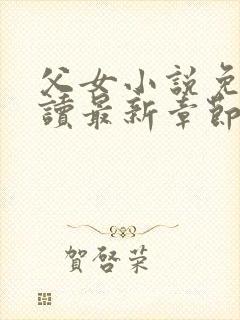 父女小説免
讀最新章節
賀啓荣